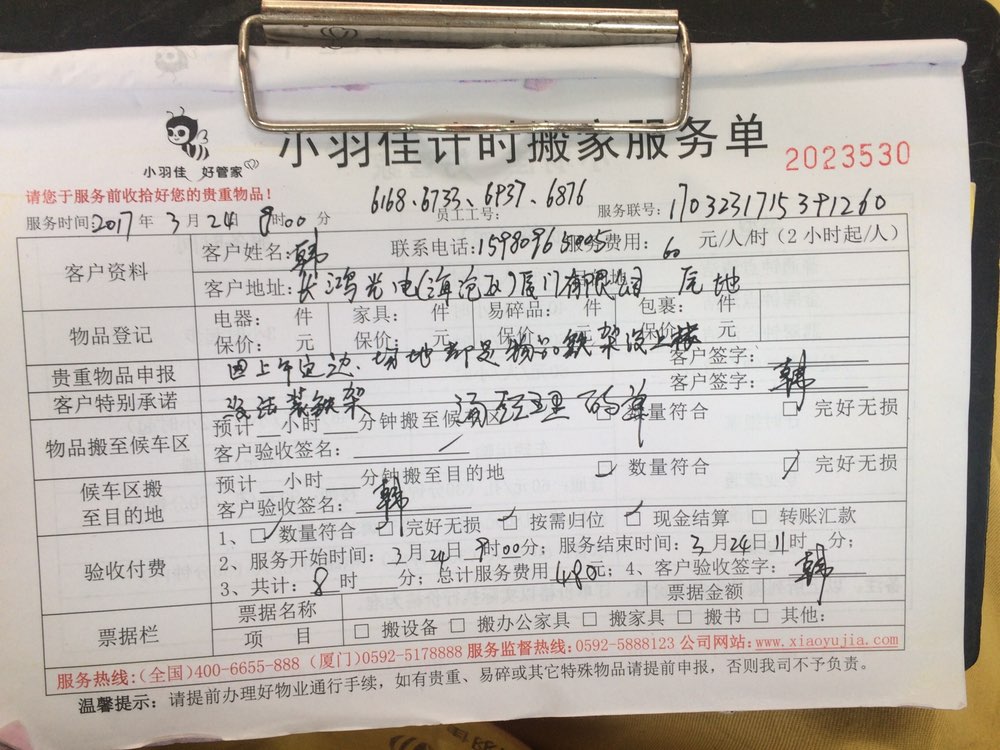 小羽佳计时搬家服务单
小羽佳 好管家
2023530
请您于服务前收拾好您的贵重物品！
6168、6733、6937、6876
服务时间:2017年 3月 24日 时00分 员工工号: 服务联号: 1703231715391260
客户资料
客户姓名:韩 联系电话:1598096 服务费用: 60 元/人/时（2小时起/人）
客户地址:长鸿光电(厦门)有限公司
物品登记
电器: 件 家具: 件 易碎品: 件 包裹: 件
保价: 元 保价: 元 保价: 元 保价: 元
贵重物品申报 客户签字:
客户特别承诺 客户签字: 韩
物品搬至候车区
预计 小时 分钟搬至候车区 □ 数量符合 □ 完好无损
客户验收签名:
候车区搬至目的地
预计 小时 分钟搬至目的地 □ 数量符合 □ 完好无损
客户验收签名: 韩
验收付费
1、□ 数量符合 □ 完好无损 □ 按需归位 □ 现金结算 □ 转账汇款
2、服务开始时间: 3月24日 时00分；服务结束时间: 3月24日11时 分；
3、共计: 8 时 分；总计服务费用 480元；4、客户验收签字: 韩
票据栏
票据名称 票据金额
项 目 □ 搬设备 □ 搬办公家具 □ 搬家具 □ 搬书 □ 其他:
服务热线:(全国)400-6655-888 (厦门)0592-5178888 服务监督热线:0592-5888123 公司网站:www.xiaoyujia.com
温馨提示: 请提前办理好物业通行手续，如有贵重、易碎或其它特殊物品请提前申报，否则我司不予负责。